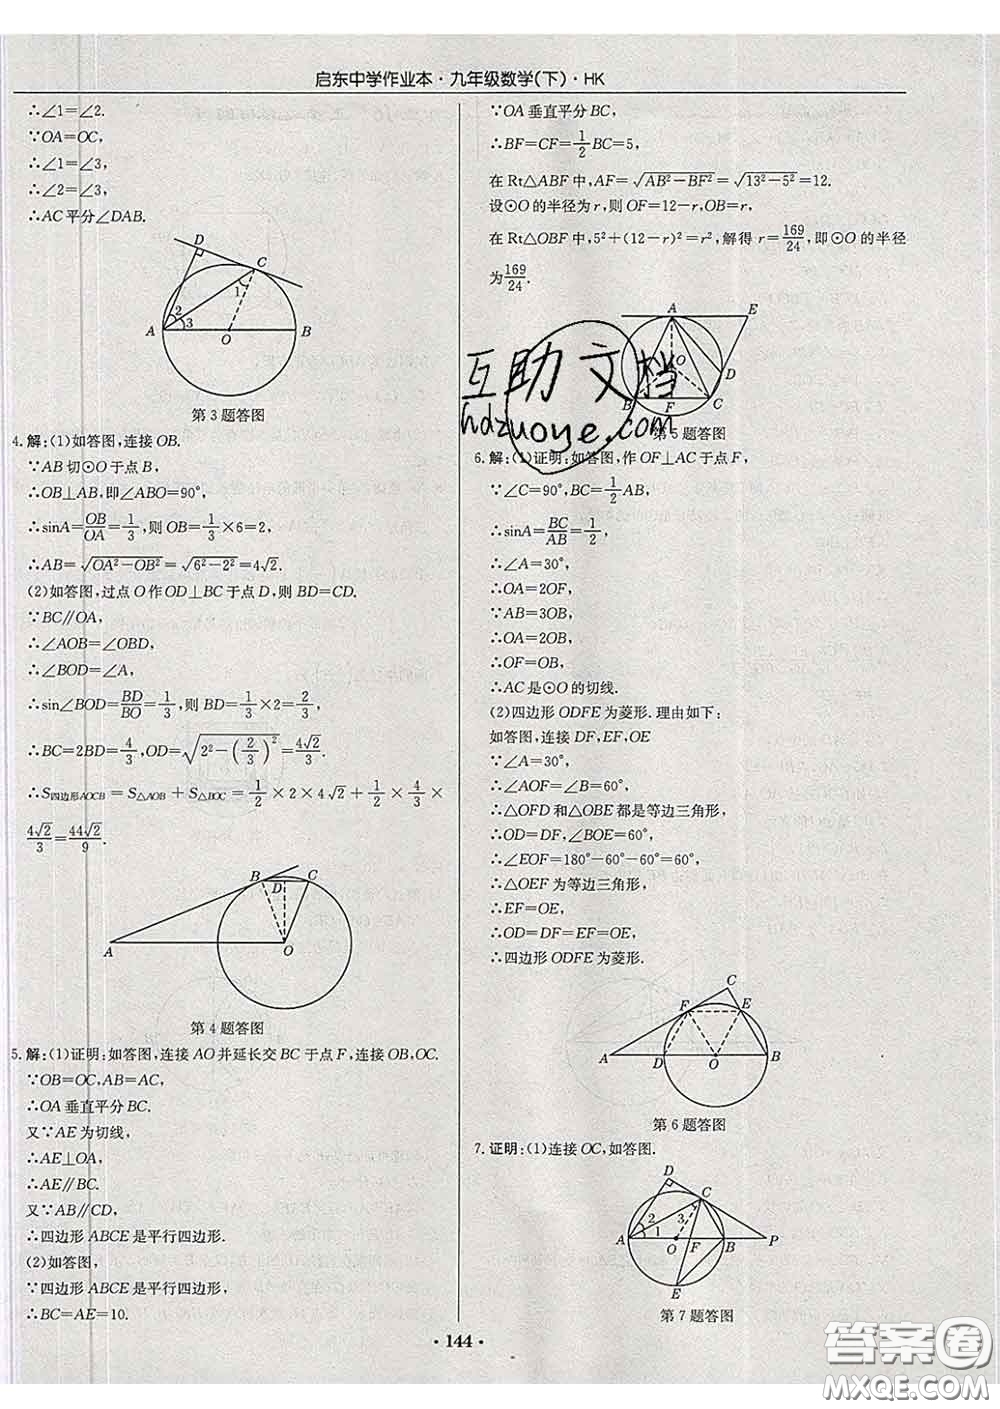 启东中学作业本·九年级数学(下)·HK
∴∠1=∠2.
∵OA=OC,
∴∠1=∠3,
∴∠2=∠3,
∴AC平分∠DAB.
D
C
1
2
3
A
O
B
第3题答图
4.解:(1)如答图,连接OB.
∵AB切⊙O于点B,
∴OB⊥AB,即∠ABO=90°,
∴sinA=OB/OA=1/3,则OB=1/3×6=2,
∴AB=√(OA²-OB²)=√(6²-2²)=4√2.
(2)如答图,过点O作OD⊥BC于点D,则BD=CD.
∵BC∥OA,
∴∠AOB=∠OBD,
∴∠BOD=∠A,
∴sin∠BOD=BD/BO=1/3,则BD=1/3×2=2/3,
∴BC=2BD=4/3,OD=√(2²-(2/3)²)=4√2/3,
∴S四边形AOCB=S△AOB+S△BOC=1/2×2×4√2+1/2×4/3×
4√2/3=44√2/9.
B
D
C
A
O
第4题答图
5.解:(1)证明:如答图,连接AO并延长交BC于点F,连接OB,OC.
∵OB=OC,AB=AC,
∴OA垂直平分BC.
又∵AE为切线,
∴AE⊥OA,
∴AE∥BC.
又∵AB∥CD,
∴四边形ABCE是平行四边形.
(2)如答图,
∵四边形ABCE是平行四边形,
∴BC=AE=10.
∵OA垂直平分BC,
∴BF=CF=1/2BC=5,
在Rt△ABF中,AF=√(AB²-BF²)=√(13²-5²)=12.
设⊙O的半径为r,则OF=12-r,OB=r,
在Rt△OBF中,5²+(12-r)²=r²,解得r=169/24,即⊙O的半径
为169/24.
A
E
O
D
B
F
C
第5题答图
互助文档
hdzuoye.com
6.解:(1)证明:如答图,作OF⊥AC于点F,
∵∠C=90°,BC=1/2AB,
∴sinA=BC/AB=1/2,
∴∠A=30°,
∴OA=2OF,
∵AB=3OB,
∴OA=2OB,
∴OF=OB,
∴AC是⊙O的切线.
(2)四边形ODFE为菱形.理由如下:
如答图,连接DF,EF,OE
∵∠A=30°,
∴∠AOF=∠B=60°,
∴△OFD和△OBE都是等边三角形,
∴OD=DF,∠BOE=60°,
∴∠EOF=180°-60°-60°=60°,
∴△OEF为等边三角形,
∴EF=OE,
∴OD=DF=EF=OE,
∴四边形ODFE为菱形.
C
F
E
A
D
O
B
第6题答图
7.证明:(1)连接OC,如答图.
D
C
2
3
1
A
O
F
B
P
E
第7题答图
·144·
答案圈
MXQE.COM